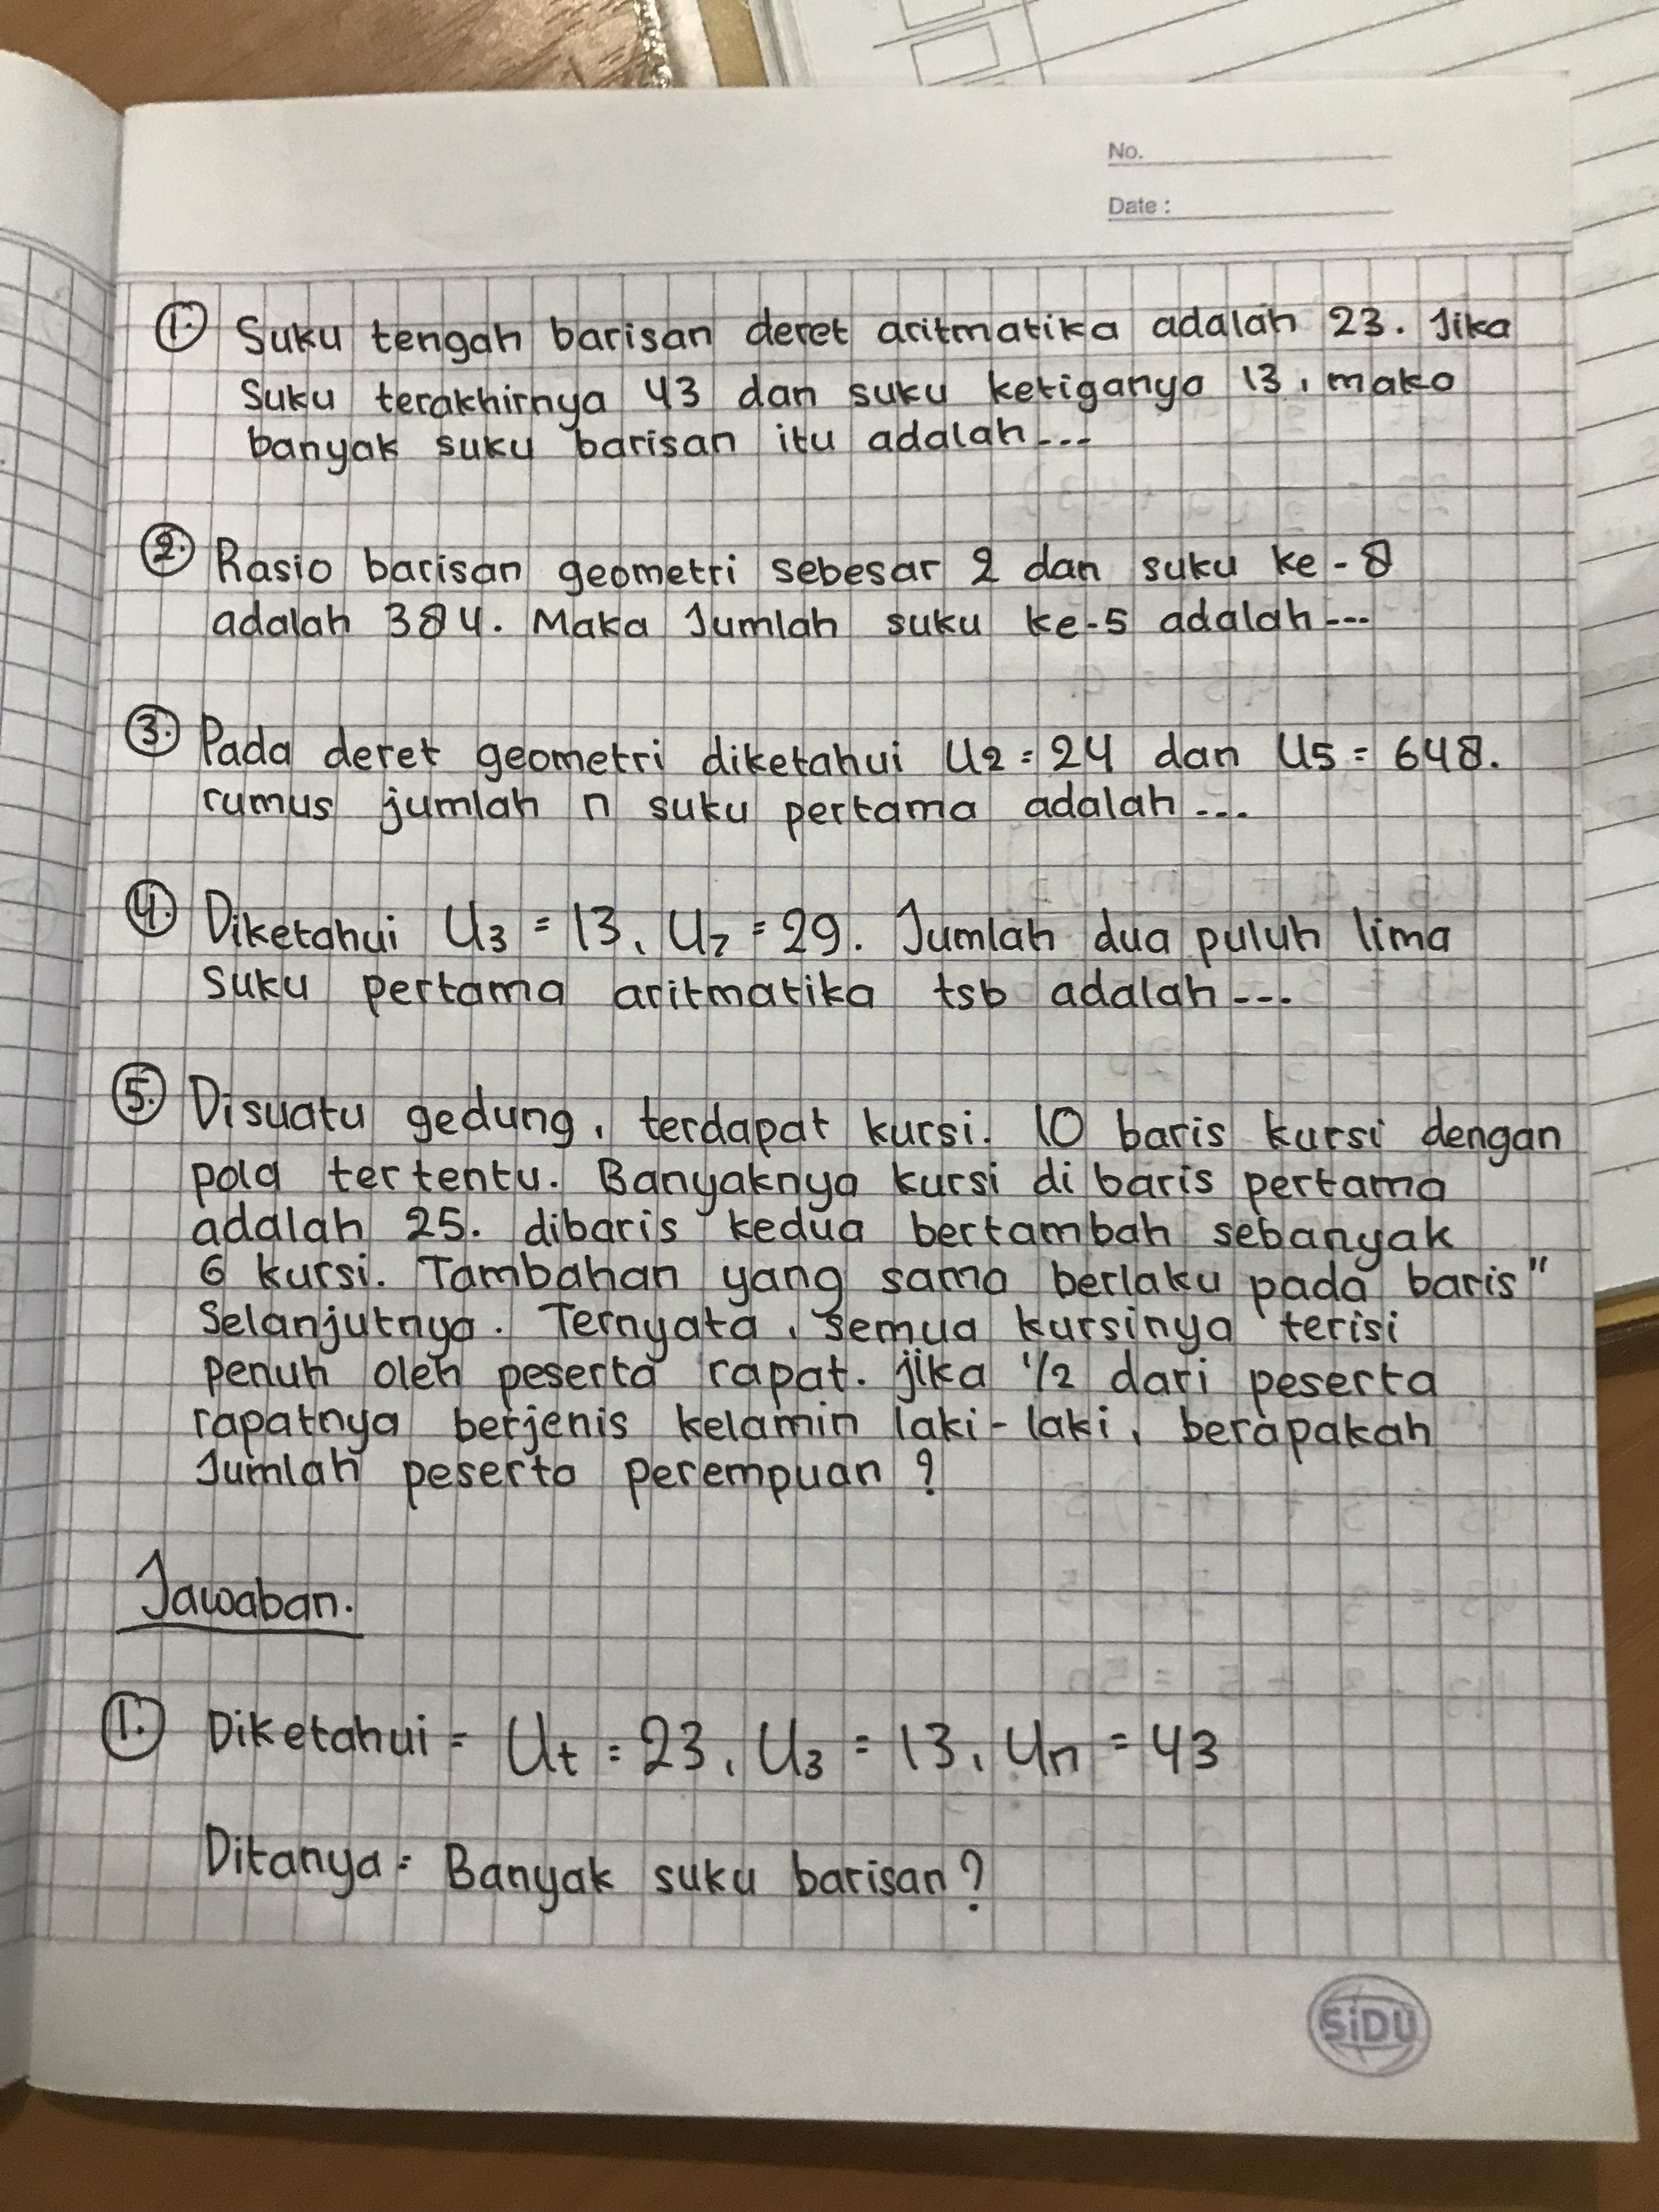 No.
Date :
1. Suku tengah barisan deret aritmatika adalah 23. Jika
Suku terakhirnya 43 dan suku ketiganya 13, maka
banyak suku barisan itu adalah ---
2. Rasio barisan geometri sebesar 2 dan suku ke - 8
adalah 384. Maka Jumlah suku ke-5 adalah ---
3. Pada deret geometri diketahui U2 = 24 dan U5 = 648.
rumus jumlah n suku pertama adalah ---
4. Diketahui U₃ = 13, U₇ = 29. Jumlah dua puluh lima
suku pertama aritmatika tsb adalah ---
5. Disuatu gedung, terdapat kursi. 10 baris kursi dengan
pola tertentu. Banyaknya kursi di baris pertama
adalah 25. dibaris kedua bertambah sebanyak
6 kursi. Tambahan yang sama berlaku pada baris"
Selanjutnya. Ternyata, semua kursinya terisi
penuh oleh peserta rapat. jika 1/2 dari peserta
rapatnya berjenis kelamin laki-laki, berapakah
Jumlah peserta perempuan ?
Jawaban.
1. Diketahui = Ut = 23, U₃ = 13, Un = 43
Ditanya = Banyak suku barisan ?
SiDU